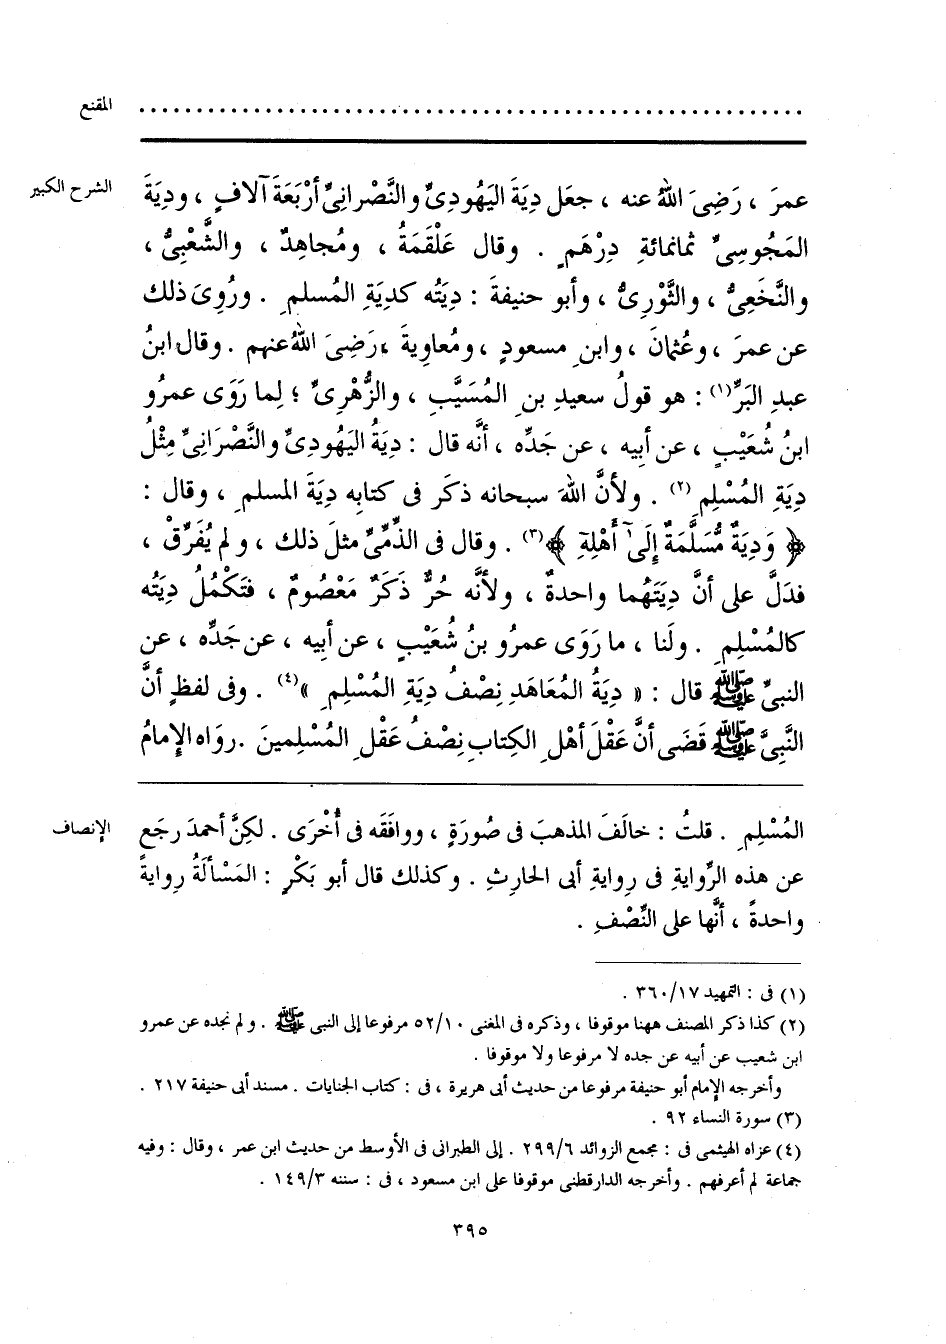 المقنع ..........................................................
الشرح الكبير
عمرَ ، رَضِىَ اللهُ عنه ، جعَل دِيَةَ اليَهُودِىِّ والنَّصْرانِىِّ أرْبَعَةَ آلافٍ ، ودِيَةَ
المَجُوسِىِّ ثمانمائةِ دِرْهَمٍ . وقال عَلْقَمَةُ ، ومُجاهِدٌ ، والشَّعْبِىُّ ،
والنَّخَعِىُّ ، والثَّوْرِىُّ ، وأبو حنيفةَ : دِيَتُه كدِيَةِ المُسلمِ . ورُوِىَ ذلك
عن عمرَ ، وعُثمانَ ، وابنِ مسعودٍ ، ومُعاوِيةَ ، رَضِىَ اللهُ عنهم . وقال ابنُ
عبدِ البَرِّ(١) : هو قولُ سعيدِ بنِ المُسَيَّبِ ، والزُّهْرِىِّ ؛ لِما رَوَى عمرُو
ابنُ شُعَيْبٍ ، عن أبيه ، عن جَدِّه ، أنَّه قال : دِيَةُ اليَهُودِىِّ والنَّصْرَانِىِّ مِثْلُ
دِيَةِ المُسْلِمِ(٢) . ولأنَّ اللهَ سبحانه ذكَر فى كتابِه دِيَةَ المسلمِ ، وقال :
﴿ وَدِيَةٌ مُّسَلَّمَةٌ إِلَىٰٓ أَهْلِهِۦ ﴾(٣) . وقال فى الذِّمِّىِّ مثلَ ذلك ، ولم يُفَرِّقْ ،
فدَلَّ على أنَّ دِيَتَهُما واحدةٌ ، ولأنَّه حُرٌّ ذَكَرٌ مَعْصُومٌ ، فتَكْمُلُ دِيَتُه
كالمُسْلِمِ . ولَنا ، ما رَوَى عمرُو بنُ شُعَيْبٍ ، عن أبيه ، عن جَدِّه ، عن
النبىِّ ﷺ قال : « دِيَةُ المُعَاهَدِ نِصْفُ دِيَةِ المُسْلِمِ »(٤) . وفى لفظٍ أنَّ
النَّبِىَّ ﷺ قَضَى أنَّ عَقْلَ أهْلِ الكِتابِ نِصْفُ عَقْلِ المُسْلِمينَ . رواه الإِمامُ
الإنصاف
المُسْلِمِ . قلتُ : خالَفَ المذهبَ فى صُورَةٍ ، ووافَقَه فى أُخْرَى . لكِنَّ أحمدَ رجَع
عن هذه الرِّوايةِ فى رِوايةِ أبى الحارِثِ . وكذلك قال أبو بَكْرٍ : المَسْألَةُ رِوايةً
واحدةً ، أنَّها على النِّصْفِ .
(١) فى : التمهيد ٣٦٠/١٧ .
(٢) كذا ذكر المصنف ههنا موقوفا ، وذكره فى المغنى ٥٢/١٠ مرفوعا إلى النبى ﷺ . ولم نجده عن عمرو
ابن شعيب عن أبيه عن جده لا مرفوعا ولا موقوفا .
وأخرجه الإمام أبو حنيفة مرفوعا من حديث أبى هريرة ، فى : كتاب الجنايات . مسند أبى حنيفة ٢١٧ .
(٣) سورة النساء ٩٢ .
(٤) عزاه الهيثمى فى : مجمع الزوائد ٢٩٩/٦ . إلى الطبرانى فى الأوسط من حديث ابن عمر ، وقال : وفيه
جماعة لم أعرفهم . وأخرجه الدارقطنى موقوفا على ابن مسعود ، فى : سننه ١٤٩/٣ .
٣٩٥